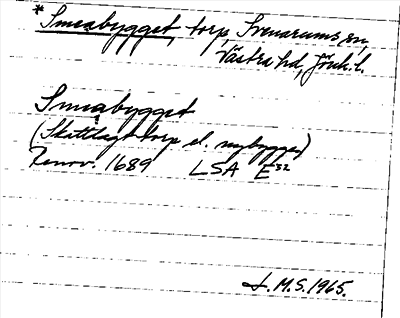 *Smeabygget, torp, Svenarums sn,
Västra hd, Jönk. l.
Smeabygget
(Skattlagt torp el. nybygge)
Renov. 1689 LSA E32
L.M.S. 1965.